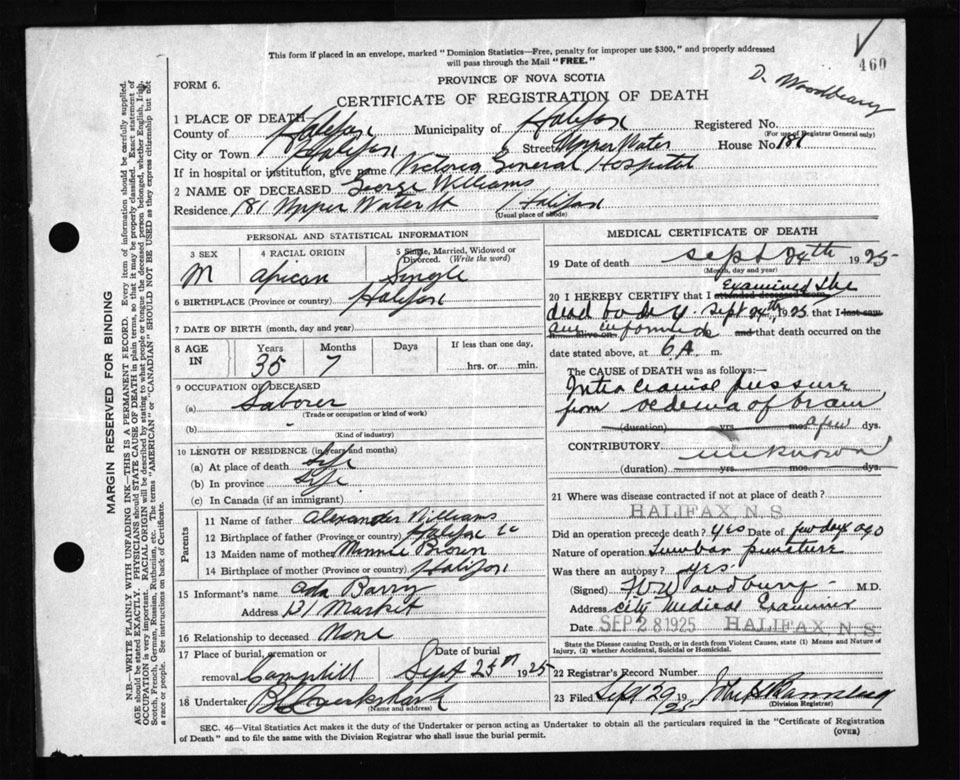 This form if placed in an envelope, marked "Dominion Statistics—Free, penalty for improper use $300," and properly addressed
will pass through the Mail "FREE."
460
PROVINCE OF NOVA SCOTIA
FORM 6.
CERTIFICATE OF REGISTRATION OF DEATH
1 PLACE OF DEATH
County of Halifax Municipality of Halifax Registered No.
(For use of Registrar General only)
City or Town Halifax Street Upper Water House No. 181
If in hospital or institution, give name Victoria General Hospital
2 NAME OF DECEASED George Williams
Residence 181 Upper Water St Halifax
(Usual place of abode)
PERSONAL AND STATISTICAL INFORMATION
3 SEX 4 RACIAL ORIGIN 5 Single, Married, Widowed or Divorced. (Write the word)
M African Single
6 BIRTHPLACE (Province or country) Halifax
7 DATE OF BIRTH (month, day and year)
8 AGE IN Years Months Days If less than one day,
35 7 hrs. or min.
9 OCCUPATION OF DECEASED
(a) Laborer
(Trade or occupation or kind of work)
(b)
(Kind of industry)
10 LENGTH OF RESIDENCE (in years and months)
(a) At place of death Life
(b) In province Life
(c) In Canada (if an immigrant)
Parents
11 Name of father Alexander Williams
12 Birthplace of father (Province or country) Halifax Co
13 Maiden name of mother Minnie Brown
14 Birthplace of mother (Province or country) Halifax
15 Informant's name Ada Barry
Address 121 Market
16 Relationship to deceased None
17 Place of burial, cremation or removal Date of burial
Camphill Sept 25th 1925
18 Undertaker
(Name and address)
MEDICAL CERTIFICATE OF DEATH
19 Date of death Sept 24th 1925
(Month, day and year)
20 I HEREBY CERTIFY that I attended deceased from Examined the
dead body Sept 24th, 1925 that I last saw
alive on am informed and that death occurred on the
date stated above, at 6 A. m.
The CAUSE of DEATH was as follows:—
Intra cranial pressure
from oedema of brain
(duration) yrs. mos. a few dys.
CONTRIBUTORY unknown
(duration) yrs. mos. dys.
21 Where was disease contracted if not at place of death?
HALIFAX, N.S.
Did an operation precede death? Yes Date of few days ago
Nature of operation Lumbar puncture
Was there an autopsy? yes.
(Signed) M.D.
Address City Medical Examiner
Date SEP 28 1925 HALIFAX, N.S.
State the Disease causing Death, or in death from Violent Causes, state (1) Means and Nature of
Injury, (2) whether Accidental, Suicidal or Homicidal.
22 Registrar's Record Number
23 Filed Sept 29 1925
(Division Registrar)
SEC. 46—Vital Statistics Act makes it the duty of the Undertaker or person acting as Undertaker to obtain all the particulars required in the "Certificate of Registration
of Death" and to file the same with the Division Registrar who shall issue the burial permit.
(OVER)
MARGIN RESERVED FOR BINDING
N.B.—WRITE PLAINLY WITH UNFADING INK—THIS IS A PERMANENT RECORD. Every item of information should be carefully supplied.
AGE should be stated EXACTLY. PHYSICIANS should STATE CAUSE OF DEATH in plain terms, so that it may be properly classified. Exact statement of
OCCUPATION is very important. RACIAL ORIGIN will be described by stating to what people or tongue the deceased person belonged, whether English, Irish,
Scotch, French, German, Russian, Ruthenian, etc. The terms "AMERICAN" or "CANADIAN" SHOULD NOT BE USED as they express citizenship but not
a race or people. See instructions on back of Certificate.